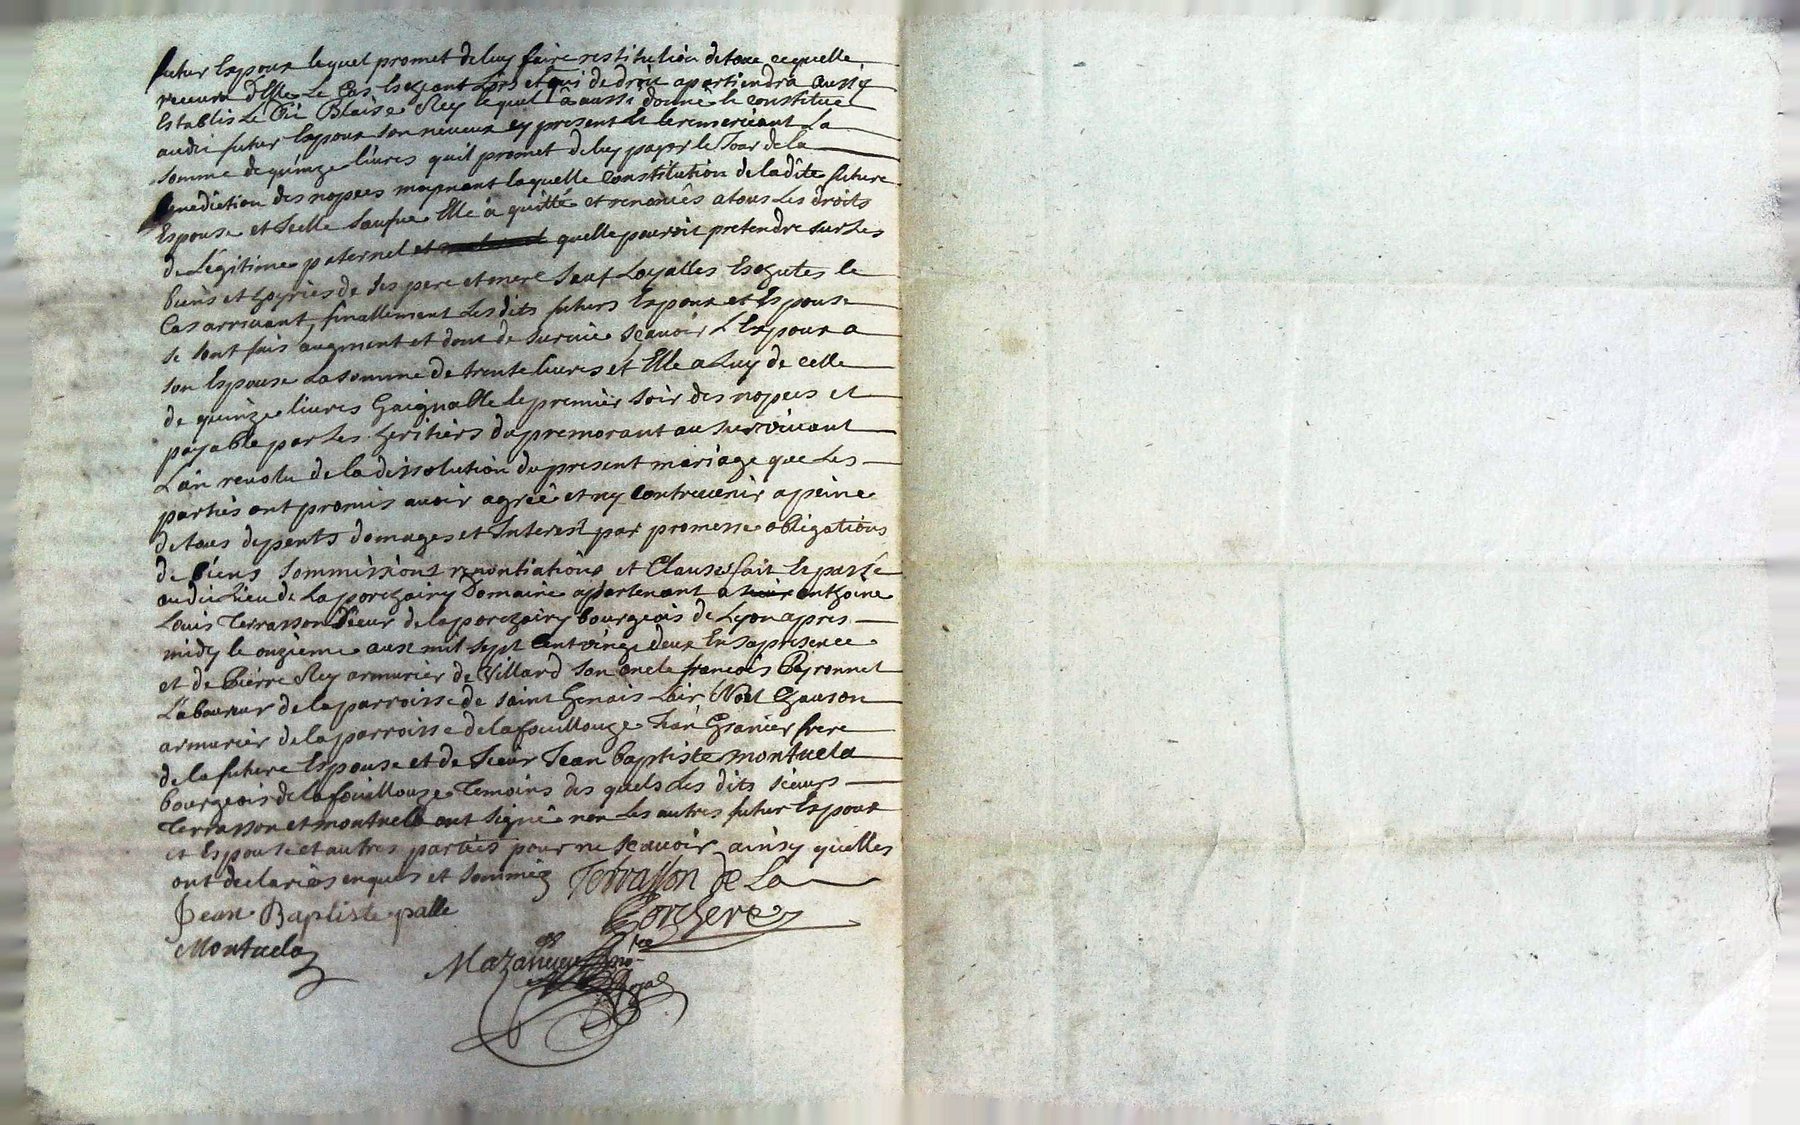 futur Espoux lequel promet de luy faire restitution de tout ce quelle
recevra d'Elle Le Cas Escheant Lors et a qui de droit apartiendra aussy
Establis Le Sr Blaise Rey lequel a aussi donné et constitué
audit futur Espoux son neveux cy present et le remerciant La
somme de quinze livres quil promet de luy payer le Jour de la
benediction des nopces moynant laquelle Constitution de ladite future
Espouse et Icelle saufve Elle a quitté et renoncés a tous Les droits
de Legitime paternel et quelle pouroit pretendre sur Les
biens et hoyries de ses pere et mere sauf Loyalles Eschutes le
Cas arrivant, finallement Lesdits futurs Espoux et Espouse
se sont fais augment et dont de survie sçavoir L'Espoux a
son Espouse La somme de trente livres et Elle a Luy de celle
de quinze livres Gaignable le premier soir des nopces et
payable par Les heritiers du premorant au survivant
L'an revolu de la dissolution du present mariage que Les
parties ont promis avoir agreé et ny contrevenir a peine
de tous depents domages et Interest par promesse obligations
de biens sommissions renontiations et Clauses fait et passé
audit Lieu de La porchairy Domaine apartenant a anthoine
Louis Terrasson Sieur de la porchairy bourgeois de Lyon apres
midy le onzieme aux mil sept Cent vingt deux En sa presence
et de Pierre Rey armurier de Villard son oncle francois Peyronnet
Laboureur de la parroisse de saint Genais Lair Noel Chauson
armurier de la parroisse de la fouillouze Jean Granier frere
de la future Espouse et de Sieur Jean baptiste montuela
bourgeois de La fouillouze Temoins des quels Les dits sieurs
Terrasson et montuela ont signé non Les autres futur Espoux
et Espouse et autres parties pour ne sçavoir ainsy quelles
ont declariés enquis et sommés Terrasson De La
Jean Baptiste palle
Porchere
Montuela
Mazancieux nore
Royal